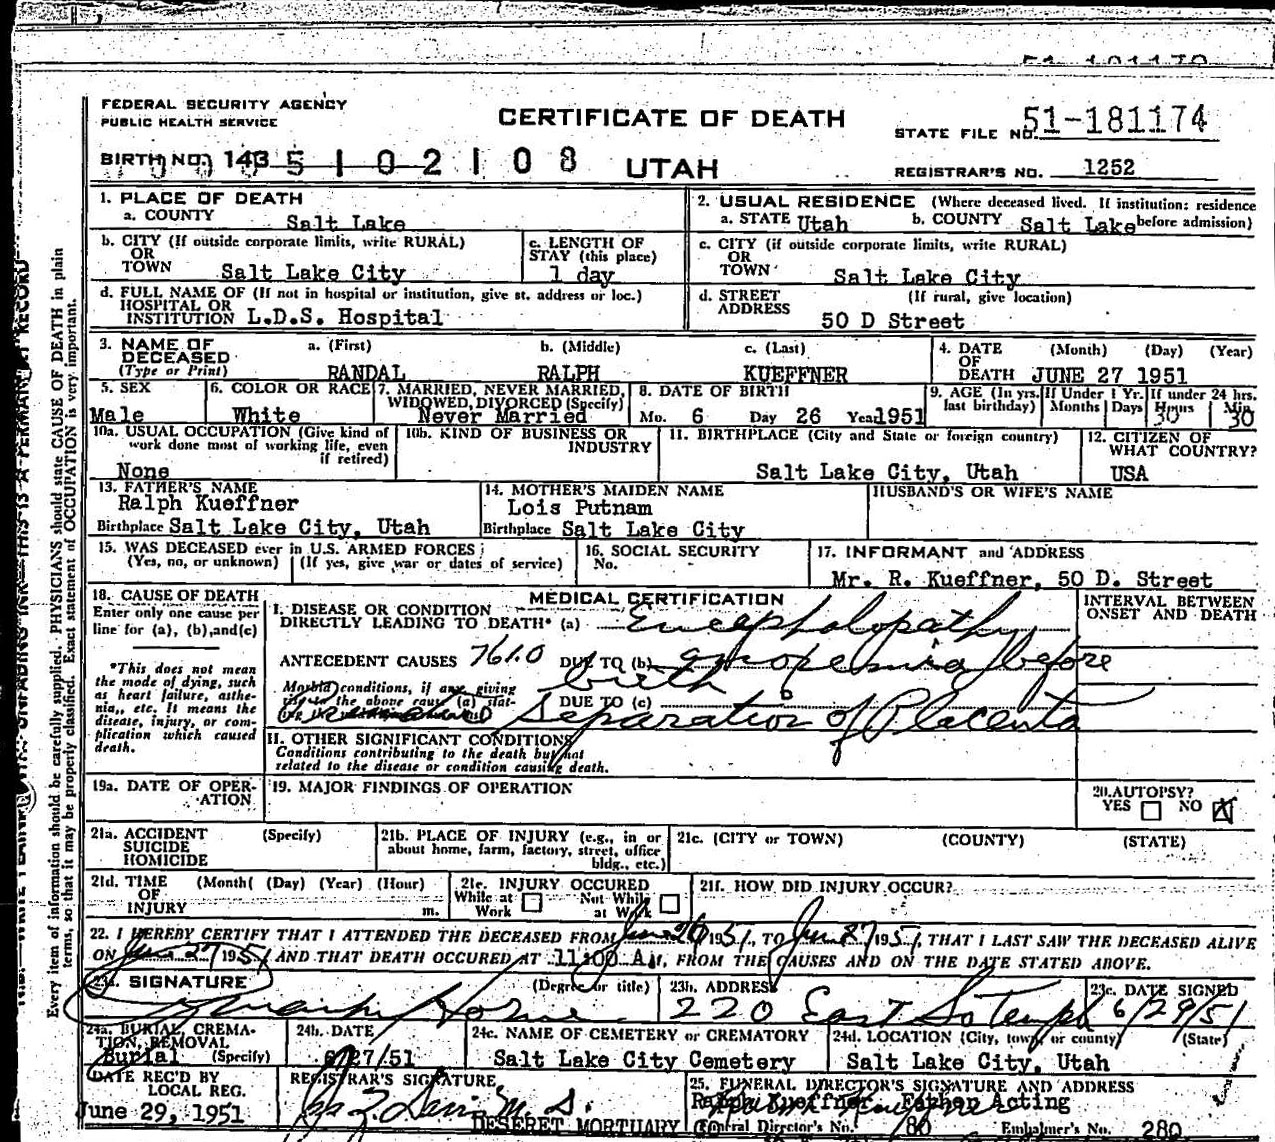 FEDERAL SECURITY AGENCY
PUBLIC HEALTH SERVICE
CERTIFICATE OF DEATH
STATE FILE NO. 51-181174
BIRTH NO. 143 5 1 0 2 1 0 8
UTAH
REGISTRAR'S NO. 1252
1. PLACE OF DEATH
a. COUNTY Salt Lake
2. USUAL RESIDENCE (Where deceased lived. If institution: residence before admission)
a. STATE Utah b. COUNTY Salt Lake
b. CITY (If outside corporate limits, write RURAL)
OR
TOWN Salt Lake City
c. LENGTH OF
STAY (this place)
1 day
c. CITY (if outside corporate limits, write RURAL)
OR
TOWN Salt Lake City
d. FULL NAME OF (If not in hospital or institution, give st. address or loc.)
HOSPITAL OR
INSTITUTION L.D.S. Hospital
d. STREET (If rural, give location)
ADDRESS 50 D Street
3. NAME OF DECEASED (Type or Print)
a. (First) b. (Middle) c. (Last)
RANDAL RALPH KUEFFNER
4. DATE (Month) (Day) (Year)
OF
DEATH JUNE 27 1951
5. SEX
Male
6. COLOR OR RACE
White
7. MARRIED, NEVER MARRIED,
WIDOWED, DIVORCED (Specify)
Never Married
8. DATE OF BIRTH
Mo. 6 Day 26 Year 1951
9. AGE (In yrs. last birthday) If Under 1 Yr. Months Days If under 24 hrs. Hours Min
30 30
10a. USUAL OCCUPATION (Give kind of
work done most of working life, even
if retired)
None
10b. KIND OF BUSINESS OR
INDUSTRY
11. BIRTHPLACE (City and State or foreign country)
Salt Lake City, Utah
12. CITIZEN OF
WHAT COUNTRY?
USA
13. FATHER'S NAME
Ralph Kueffner
Birthplace Salt Lake City, Utah
14. MOTHER'S MAIDEN NAME
Lois Putnam
Birthplace Salt Lake City
HUSBAND'S OR WIFE'S NAME
15. WAS DECEASED ever in U.S. ARMED FORCES
(Yes, no, or unknown) (If yes, give war or dates of service)
16. SOCIAL SECURITY
No.
17. INFORMANT and ADDRESS
Mr. R. Kueffner, 50 D. Street
18. CAUSE OF DEATH
Enter only one cause per
line for (a), (b), and (c)
*This does not mean
the mode of dying, such
as heart failure, asthe-
nia, etc. It means the
disease, injury, or com-
plication which caused
death.
MEDICAL CERTIFICATION
INTERVAL BETWEEN
ONSET AND DEATH
I. DISEASE OR CONDITION
DIRECTLY LEADING TO DEATH* (a) Encephalopathy
ANTECEDENT CAUSES 761.0 DUE TO (b) before
birth
Morbid conditions, if any giving
rise to the above cause (a) stat-
DUE TO (c)
Separation of Placenta
II. OTHER SIGNIFICANT CONDITIONS
Conditions contributing to the death but not
related to the disease or condition causing death.
19a. DATE OF OPER-
ATION
19. MAJOR FINDINGS OF OPERATION
20. AUTOPSY?
YES NO X
21a. ACCIDENT (Specify)
SUICIDE
HOMICIDE
21b. PLACE OF INJURY (e.g., in or
about home, farm, factory, street, office
bldg., etc.)
21c. (CITY or TOWN) (COUNTY) (STATE)
21d. TIME (Month) (Day) (Year) (Hour)
OF
INJURY m.
21e. INJURY OCCURED
While at Work Not While at Work
21f. HOW DID INJURY OCCUR?
22. I HEREBY CERTIFY THAT I ATTENDED THE DECEASED FROM June 26 1951, TO Jun 27 1951, THAT I LAST SAW THE DECEASED ALIVE
ON Jun 27 1951 AND THAT DEATH OCCURED AT 11:00 A M, FROM THE CAUSES AND ON THE DATE STATED ABOVE.
23a. SIGNATURE (Degree or title)
23b. ADDRESS
220 East So Temple
23c. DATE SIGNED
6/29/51
24a. BURIAL, CREMA-
TION, REMOVAL
Burial (Specify)
24b. DATE
6/27/51
24c. NAME OF CEMETERY or CREMATORY
Salt Lake City Cemetery
24d. LOCATION (City, town, or county) (State)
Salt Lake City, Utah
DATE REC'D BY
LOCAL REG.
June 29, 1951
REGISTRAR'S SIGNATURE
25. FUNERAL DIRECTOR'S SIGNATURE AND ADDRESS
Ralph Kueffner Father Acting
DESERET MORTUARY CO
Funeral Director's No. 80 Embalmer's No. 280
Every item of information should be carefully supplied. PHYSICIANS should state CAUSE OF DEATH in plain
terms, so that it may be properly classified. Exact statement of OCCUPATION is very important.